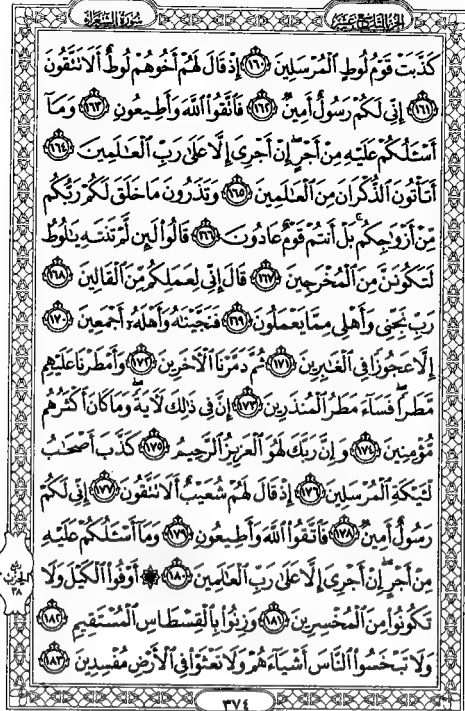 سُورَةُ الشُّعَرَاءِ الجزء التاسع عشر
كَذَّبَتْ قَوْمُ لُوطٍ ٱلْمُرْسَلِينَ ١٦٠ إِذْ قَالَ لَهُمْ أَخُوهُمْ لُوطٌ أَلَا تَتَّقُونَ
١٦١ إِنِّي لَكُمْ رَسُولٌ أَمِينٌ ١٦٢ فَٱتَّقُوا۟ ٱللَّهَ وَأَطِيعُونِ ١٦٣ وَمَآ
أَسْـَٔلُكُمْ عَلَيْهِ مِنْ أَجْرٍ إِنْ أَجْرِىَ إِلَّا عَلَىٰ رَبِّ ٱلْعَـٰلَمِينَ ١٦٤
أَتَأْتُونَ ٱلذُّكْرَانَ مِنَ ٱلْعَـٰلَمِينَ ١٦٥ وَتَذَرُونَ مَا خَلَقَ لَكُمْ رَبُّكُم
مِّنْ أَزْوَٰجِكُم بَلْ أَنتُمْ قَوْمٌ عَادُونَ ١٦٦ قَالُوا۟ لَئِن لَّمْ تَنتَهِ يَـٰلُوطُ
لَتَكُونَنَّ مِنَ ٱلْمُخْرَجِينَ ١٦٧ قَالَ إِنِّى لِعَمَلِكُم مِّنَ ٱلْقَالِينَ ١٦٨
رَبِّ نَجِّنِى وَأَهْلِى مِمَّا يَعْمَلُونَ ١٦٩ فَنَجَّيْنَـٰهُ وَأَهْلَهُۥٓ أَجْمَعِينَ ١٧٠
إِلَّا عَجُوزًا فِى ٱلْغَـٰبِرِينَ ١٧١ ثُمَّ دَمَّرْنَا ٱلْـَٔاخَرِينَ ١٧٢ وَأَمْطَرْنَا عَلَيْهِم
مَّطَرًا فَسَآءَ مَطَرُ ٱلْمُنذَرِينَ ١٧٣ إِنَّ فِى ذَٰلِكَ لَـَٔايَةً وَمَا كَانَ أَكْثَرُهُم
مُّؤْمِنِينَ ١٧٤ وَإِنَّ رَبَّكَ لَهُوَ ٱلْعَزِيزُ ٱلرَّحِيمُ ١٧٥ كَذَّبَ أَصْحَـٰبُ
لْـَٔيْكَةِ ٱلْمُرْسَلِينَ ١٧٦ إِذْ قَالَ لَهُمْ شُعَيْبٌ أَلَا تَتَّقُونَ ١٧٧ إِنِّى لَكُمْ
رَسُولٌ أَمِينٌ ١٧٨ فَٱتَّقُوا۟ ٱللَّهَ وَأَطِيعُونِ ١٧٩ وَمَآ أَسْـَٔلُكُمْ عَلَيْهِ
مِنْ أَجْرٍ إِنْ أَجْرِىَ إِلَّا عَلَىٰ رَبِّ ٱلْعَـٰلَمِينَ ١٨٠ ۞ أَوْفُوا۟ ٱلْكَيْلَ وَلَا
تَكُونُوا۟ مِنَ ٱلْمُخْسِرِينَ ١٨١ وَزِنُوا۟ بِٱلْقِسْطَاسِ ٱلْمُسْتَقِيمِ ١٨٢
وَلَا تَبْخَسُوا۟ ٱلنَّاسَ أَشْيَآءَهُمْ وَلَا تَعْثَوْا۟ فِى ٱلْأَرْضِ مُفْسِدِينَ ١٨٣
الحزب
٣٨
٣٧٤